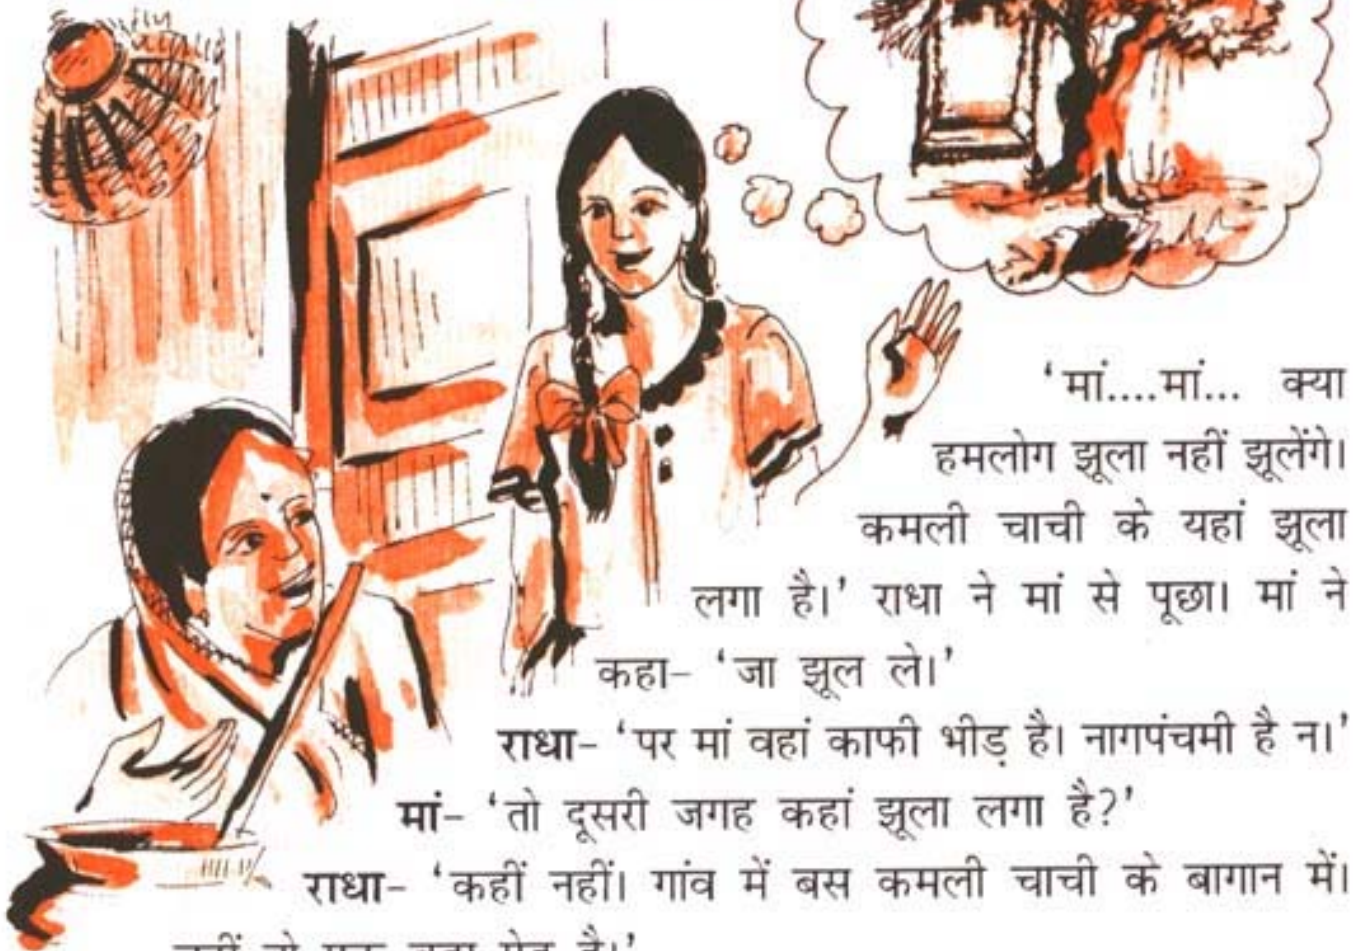 ‘मां....मां... क्या
हमलोग झूला नहीं झूलेंगे।
कमली चाची के यहां झूला
लगा है।’ राधा ने मां से पूछा। मां ने
कहा– ‘जा झूल ले।’
राधा– ‘पर मां वहां काफी भीड़ है। नागपंचमी है न।’
मां– ‘तो दूसरी जगह कहां झूला लगा है?’
राधा– ‘कहीं नहीं। गांव में बस कमली चाची के बागान में।
है।’